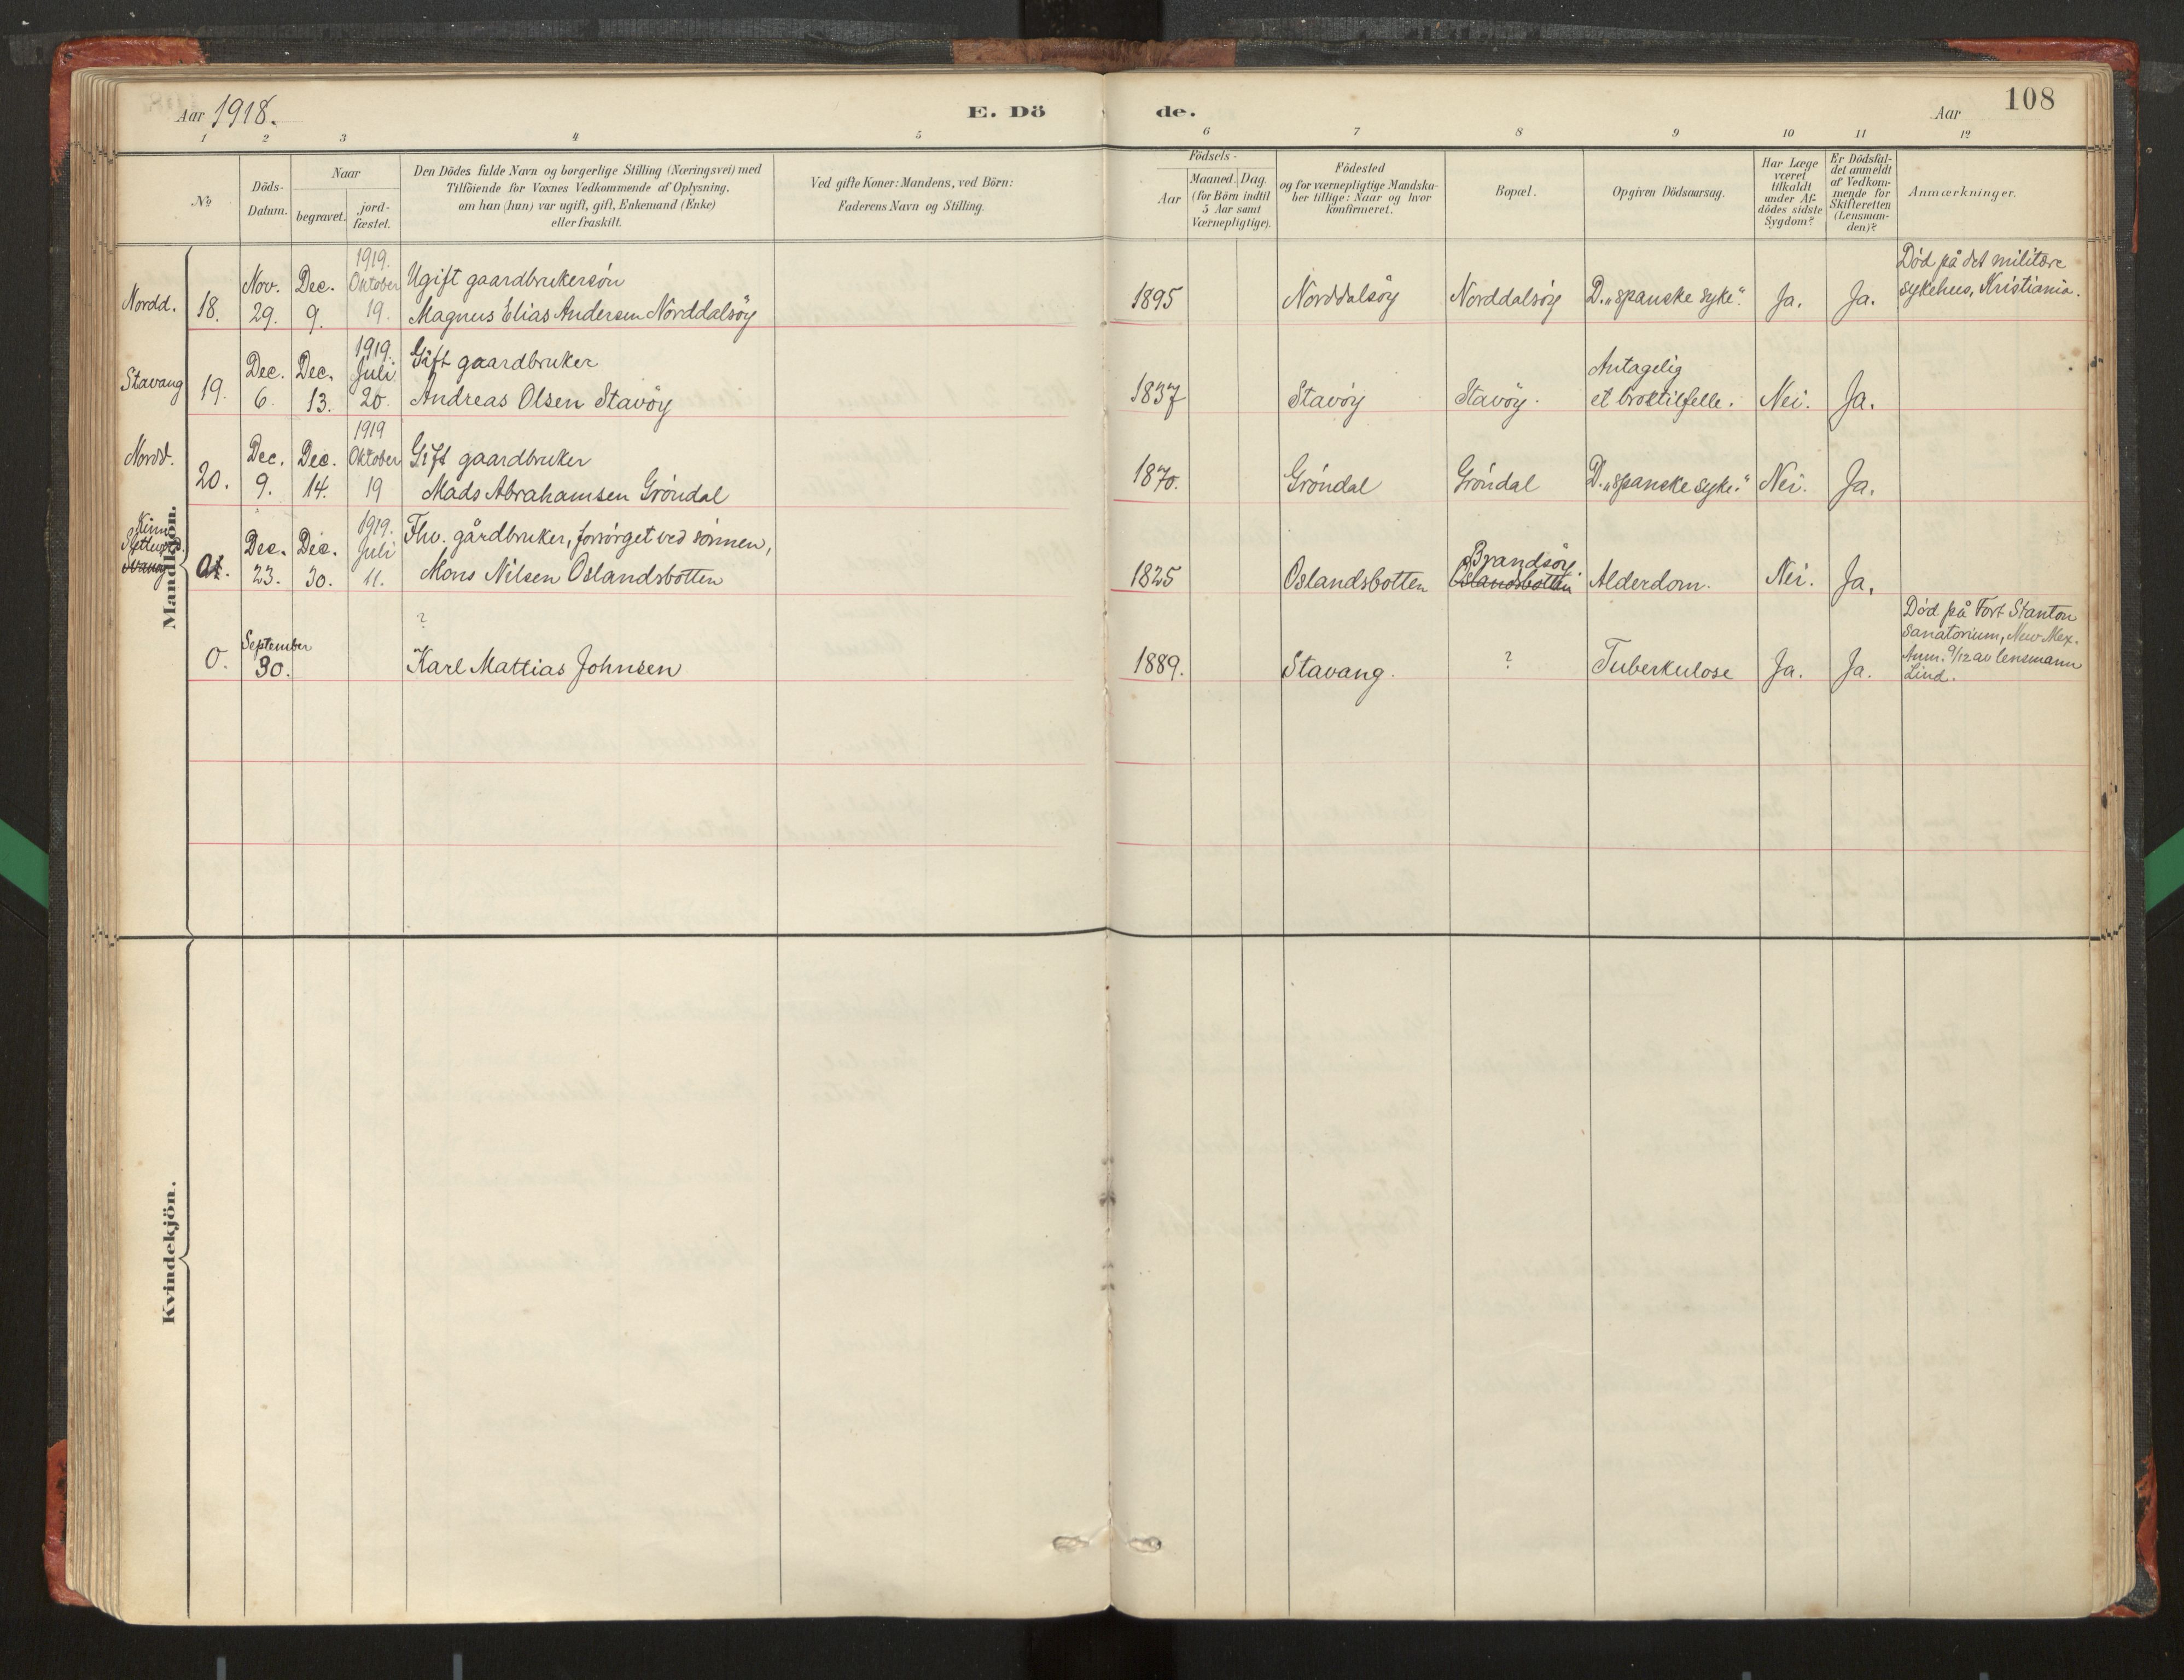 108
Aar 1918.
E. Dö
de.
Aar
1 2 3 4 5 6 7 8 9 10 11 12
No
Döds-
Datum.
Naar
begravet.
jord-
fæstet.
Den Dödes fulde Navn og borgerlige Stilling (Næringsvei) med
Tilföiende for Voxnes Vedkommende af Oplysning,
om han (hun) var ugift, gift, Enkemand (Enke)
eller fraskilt.
Ved gifte Koner: Mandens, ved Börn:
Faderens Navn og Stilling.
Födsels-
Aar
Maaned. Dag.
(for Börn indtil
5 Aar samt
Værnepligtige).
Födested
og for værnepligtige Mandska-
ber tillige: Naar og hvor
konfirmeret.
Bopæl.
Opgiven Dödsaarsag.
Har Læge
været
tilkaldt
under Af-
dödes sidste
Sygdom?
Er Dödsfal-
det anmeldt
af Vedkom-
mende for
Skifteretten
(Lensman-
den)?
Anmærkninger.
Mandkjön.
Nordd. 18. Nov. 29. Dec. 9. 1919. Oktober 19.
Ugift gaardbrukersön
Magnus Elias Andersen Norddalsöy
1895 Norddalsöy Norddalsöy D. „spanske syke". Ja. Ja.
Död på det militære
sykehus, Kristiania.
Stavang 19. Dec. 6. Dec. 13. 1919. Juli 20.
Gift gaardbruker
Andreas Olsen Stavöy
1837 Stavöy Stavöy.
Antagelig
et broktilfelle. Nei. Ja.
Nordd. 20. Dec. 9. Dec. 14. 1919 Oktober 19
Gift gaardbruker
Mads Abrahamsen Gröndal
1870. Gröndal Gröndal D. „spanske syke." Nei. Ja.
Kinn
Dec. 23. Dec. 30. 1919. Juli 11.
Fhv. gårdbruker, forsörget ved sönnen,
Mons Nilsen Oslandsbotten
1825 Oslandsbotten
Brandsöy
Oslandsbotten
Alderdom. Nei. Ja.
0. September 30.
?
Karl Mattias Johnsen
1889. Stavang. ? Tuberkulose Ja. Ja.
Död på Fort Stanton
Sanatorium, New Mex.
Anm. 9/12 av lensmann
Lind.
Kvindekjön.